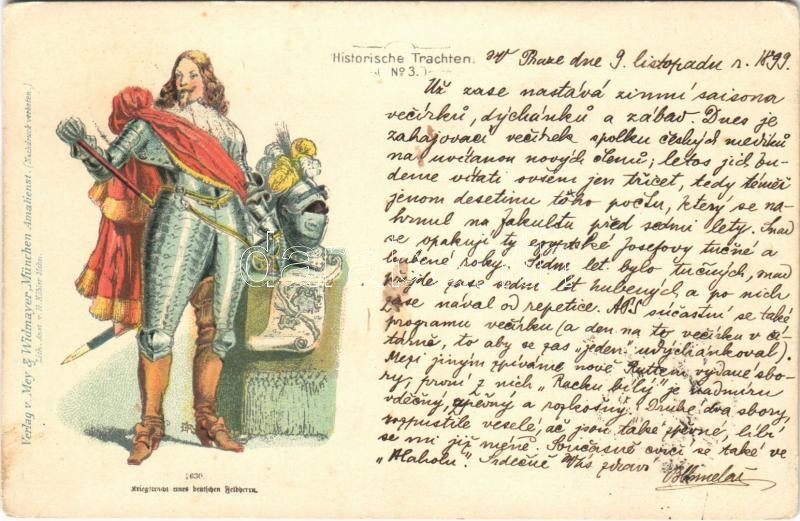 Historische Trachten.
No 3.
v Praze dne 9. listopadu r. 1899
Už zase nastává zimní saisona
večírků, dýchánků a zábav. Dnes je
zahajovací večírek spolku českých mediků
na uvítanou nových členů; letos jich bu-
deme vítati ovšem jen třicet, tedy téměř
jenom desetinu toho počtu, který se na-
hrnul na fakultu před sedmi lety. Snad
se opakují ty egyptské Josefovy tučné a
hubené roky. Sedm let bylo tučných, snad
přijde zase sedm let hubených a po nich
zase nával od repetice. APS súčastní se také
programu večírku (a den na to večírku v či-
tárně, to aby se zas "jeden" udýchánkoval).
Mezi jiným zpíváme nové vydané sbo-
ry, první z nich "Racku bílý" je nadmíru
vděčný, zpěvný a rozkošný. Druhé dva sbory,
rozpustile veselé, ač jsou také zpěvné, líbí
se mi již méně. Současně cvičí se také ve
"Hlaholu". Srdečně Vás zdraví
Verlag v. Mey & Widmayer, München Amalienst. (Nachdruck verboten.)
Lith. Anst. v.
1630.
Kriegstracht eines deutschen Feldherrn.